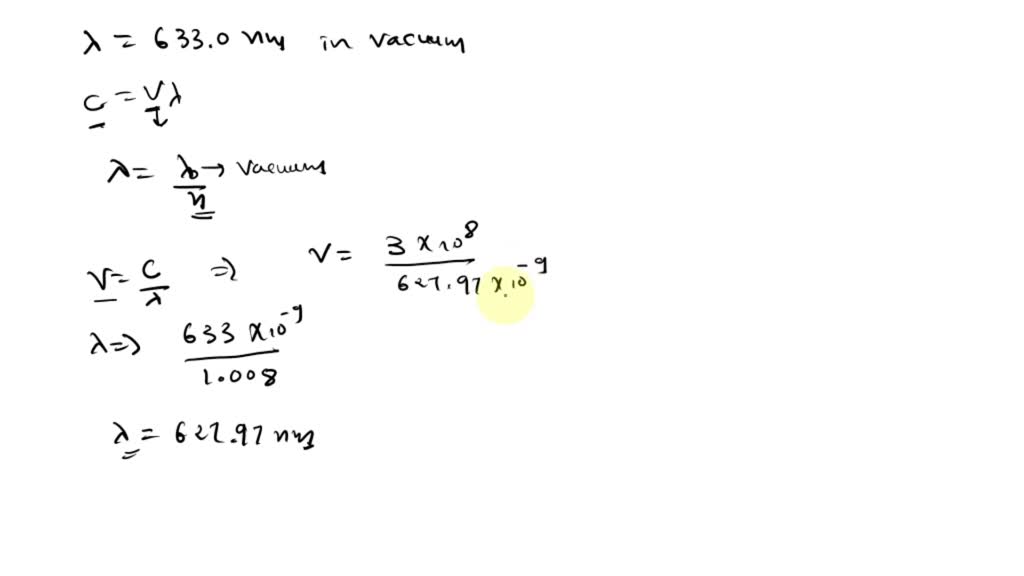 λ = 633.0 nm in vacuum
c = νλ
λ = λ₀/n → vacuum
ν = c/λ ⇒ ν = 3 × 10⁸ / 627.97 × 10⁻⁹
λ ⇒ 633 × 10⁻⁹ / 1.008
λ = 627.97 nm